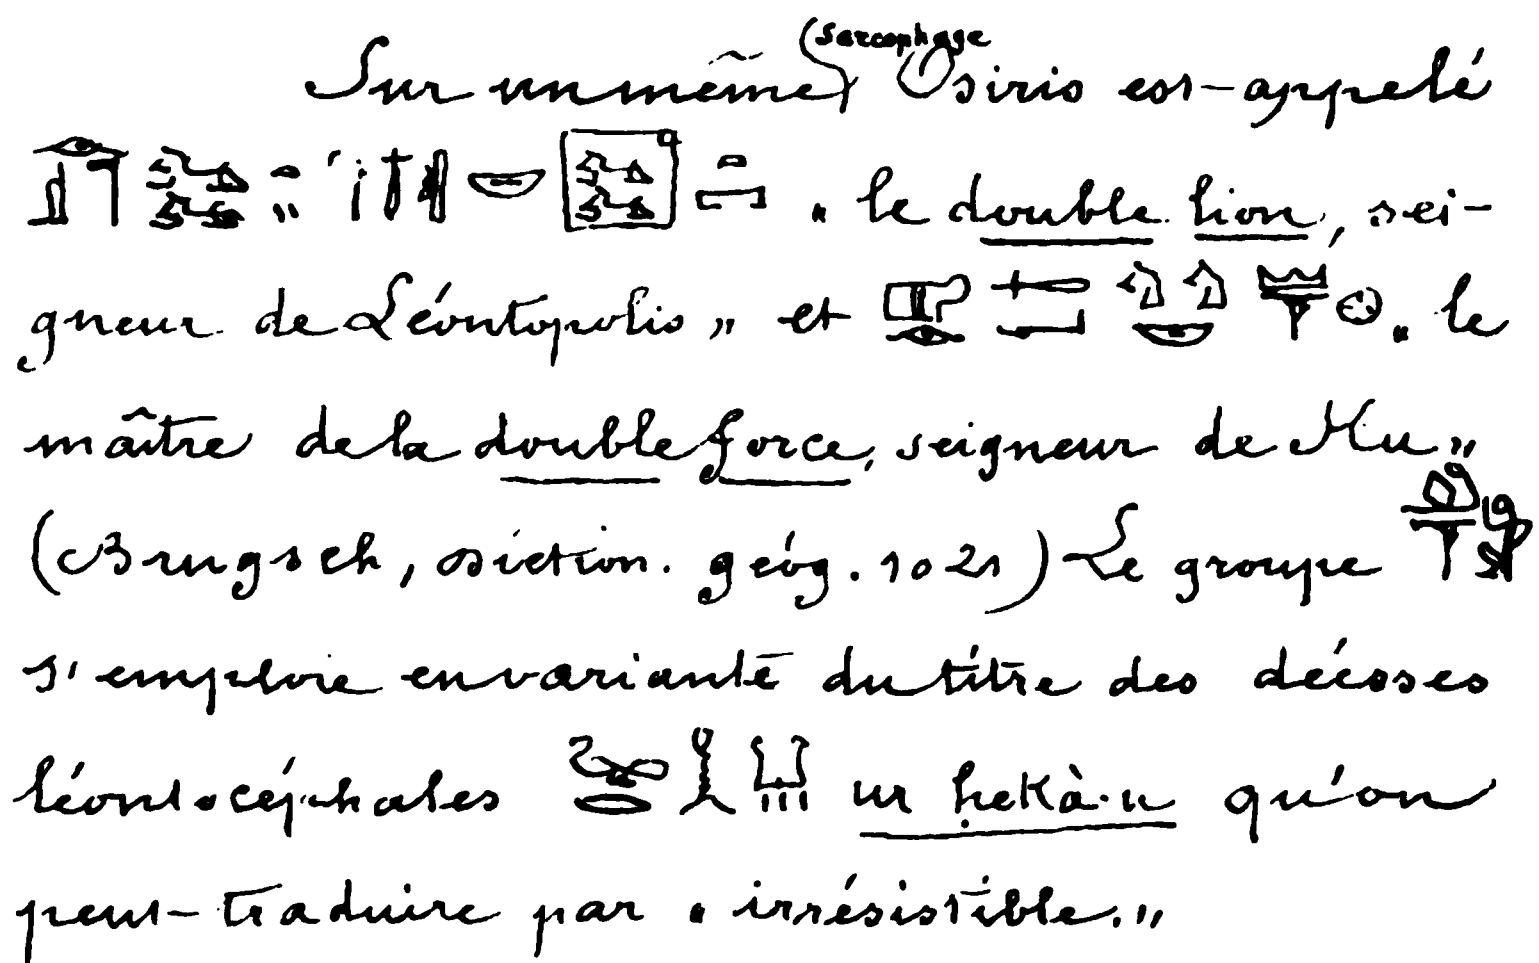 Sur un même (sarcophage) Osiris est-appelé
« le double lion, sei-
gneur de Léontopolis » et « le
maître de la double force, seigneur de Mu »
(Brugsch, diction. géog. 1021) Le groupe
s'emploie en variante du titre des déesses
léontocéphales ur ḥekà.u qu'on
peut-traduire par « irrésistible. »